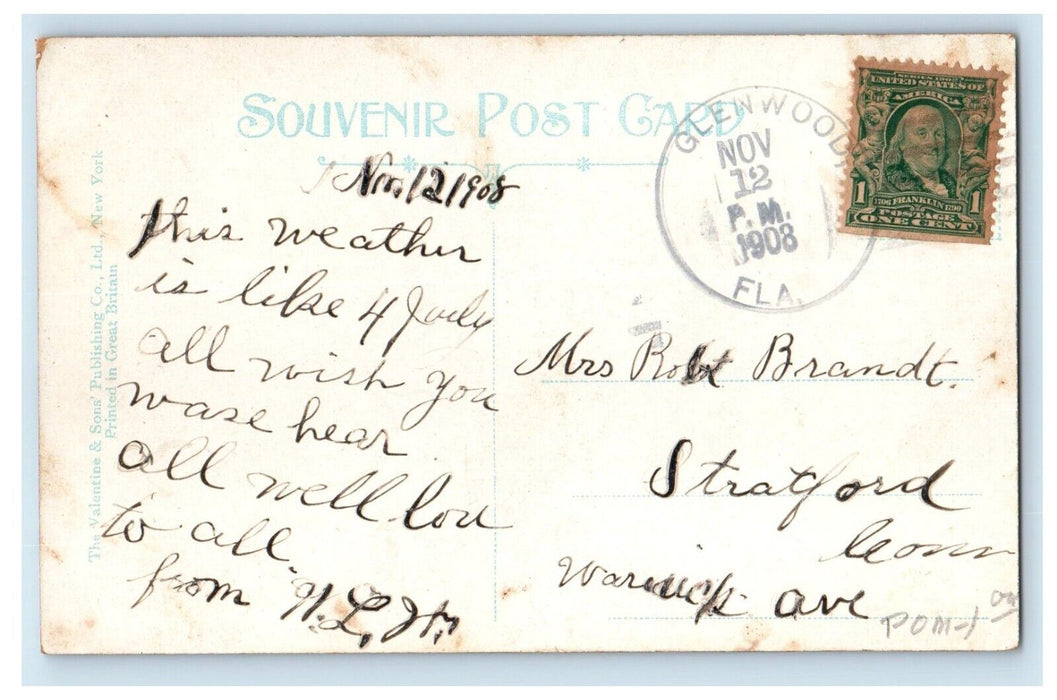 SOUVENIR POST CARD
The Valentine & Sons' Publishing Co., Ltd., New York
Printed in Great Britain
Nov 12 1908
this weather
is like 4 July
all wish you
wase hear
all well lov
to all
from
GLENWOOD,
NOV
12
P.M.
1908
FLA.
SERIES 1902
UNITED STATES OF
AMERICA
1 1
1706 FRANKLIN 1790
POSTAGE
ONE CENT
Mrs Robt Brandt.
Stratford
Conn
Warwick ave
POM-1